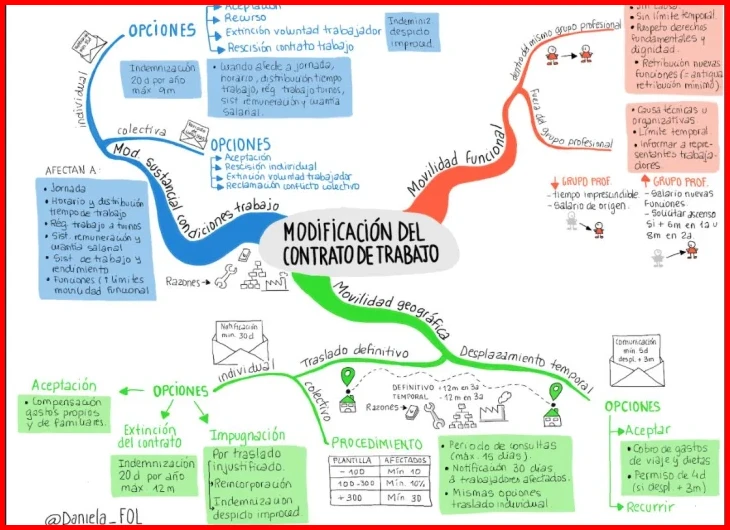 OPCIONES
Aceptación
Recurso
Extinción voluntad trabajador
Rescisión contrato trabajo
Indemniz
despido
improced
individual
Indemnización
20 d por año
máx 9m
• Cuando afecte a jornada,
horario, distribución tiempo
trabajo, rég trabajo turnos,
sist remuneración y cuantía
salarial.
colectiva
OPCIONES
Aceptación
Rescisión individual
Extinción voluntad trabajador
Reclamación conflicto colectivo
Mod sustancial condiciones trabajo
AFECTAN A:
• Jornada
• Horario y distribución
tiempo de trabajo
• Rég trabajo a turnos
• Sist. remuneración y
cuantía salarial
• Sist de trabajo y
rendimiento
• Funciones (↑ límites
movilidad funcional
Razones →
MODIFICACIÓN DEL
CONTRATO DE TRABAJO
Movilidad funcional
dentro del mismo grupo profesional
• Sin causa.
• Sin límite temporal.
• Respeto derechos
fundamentales y
dignidad.
• Retribución nuevas
funciones (= antigua
retribución mínimo).
Fuera del grupo profesional
• Causa técnicas u
organizativas
• Límite temporal
• Informar a repre-
sentantes trabaja-
dores.
↓ GRUPO PROF.
- tiempo imprescindible.
- Salario de origen.
↑ GRUPO PROF.
- Salario nuevas
funciones.
- Solicitar ascenso
si + 6m en 1a u
8m en 2a.
Movilidad geográfica
Traslado definitivo
Notificación
mín. 30d
individual
colectivo
Aceptación
• Compensación
gastos propios
y de familiares.
OPCIONES
Extinción
del contrato
Indemnización
20 d por año
máx 12m
Impugnación
Por traslado
injustificado.
Reincorporación
Indemnización
despido improced
DEFINITIVO +12m en 3a
TEMPORAL - 12m en 3a
Razones →
PROCEDIMIENTO
PLANTILLA AFECTADOS
- 100 Mín 10
100-300 Mín. 10%
+ 300 Mín 30
• Periodo de consultas
(máx. 15 días).
• Notificación 30 días
a trabajadores afectados.
• Mismas opciones
traslado individual
Desplazamiento temporal
Comunicación
mín 5d
despl. + 3m
OPCIONES
Aceptar
• Cobro de gastos
de viaje y dietas
• Permiso de 4d
(si despl + 3m)
Recurrir
@Daniela_FOL